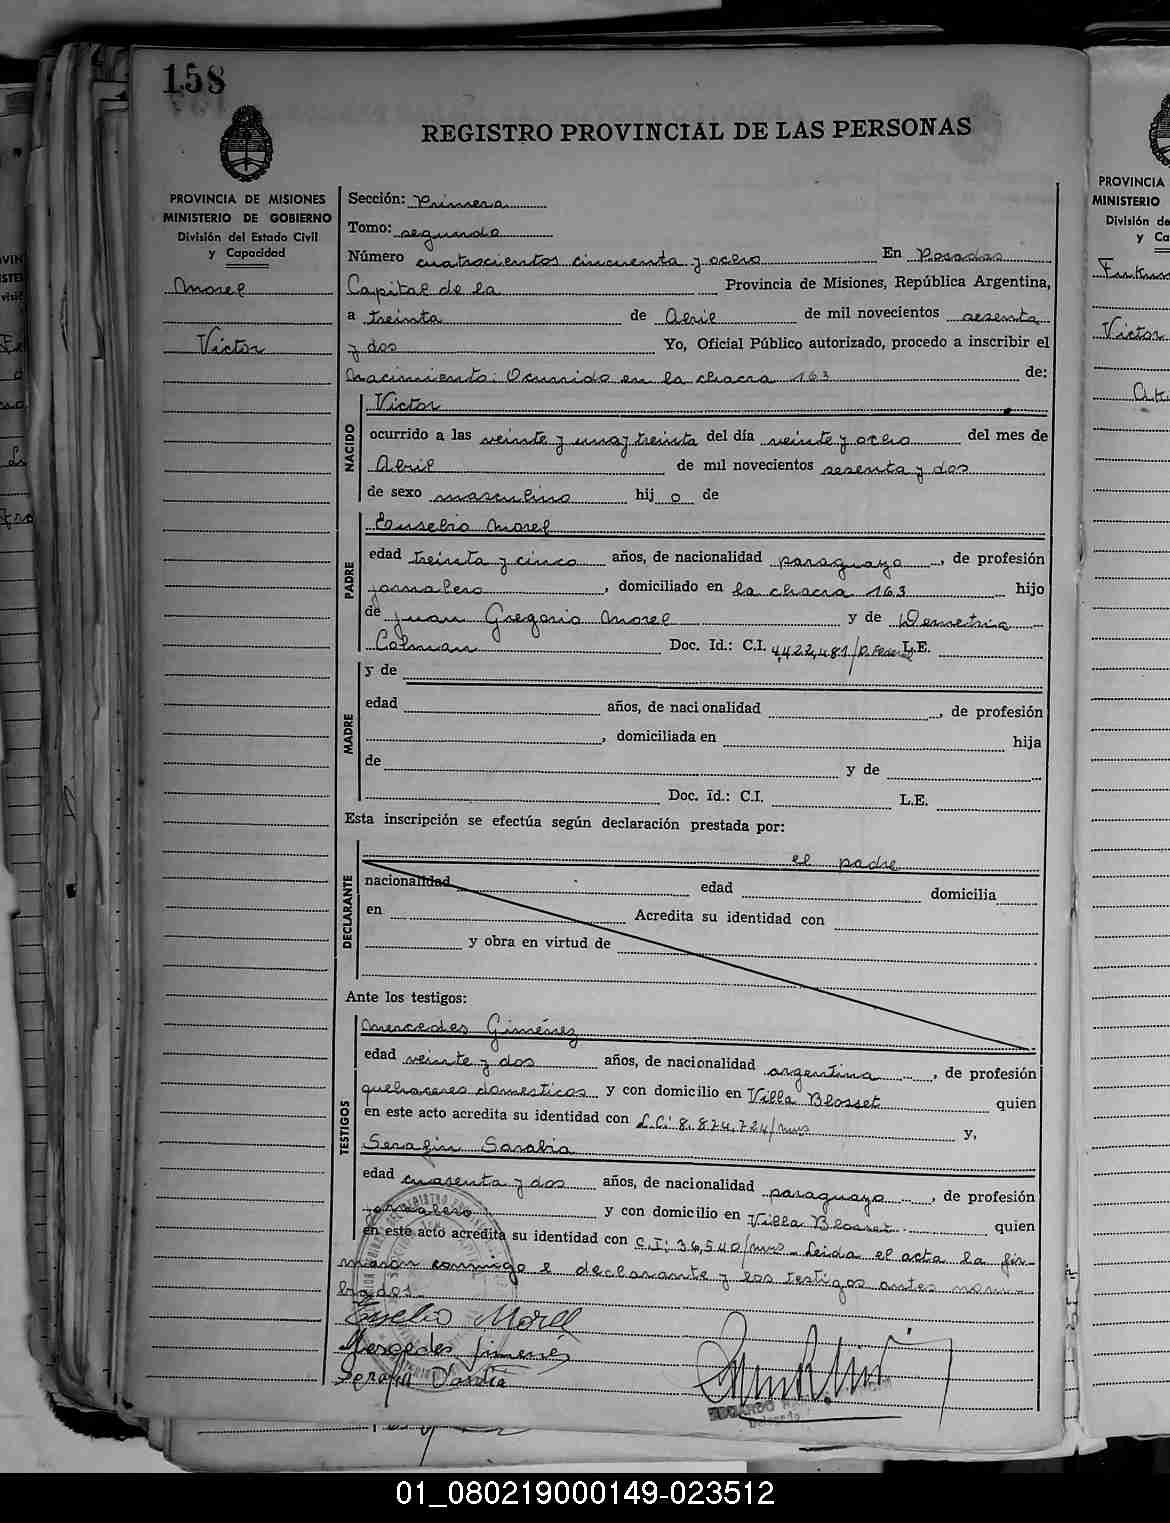 158
REGISTRO PROVINCIAL DE LAS PERSONAS
PROVINCIA DE MISIONES
MINISTERIO DE GOBIERNO
División del Estado Civil
y Capacidad
Morel
Victor
Sección: Primera
Tomo: segundo
Número cuatrocientos cincuenta y ocho En Posadas
Capital de la Provincia de Misiones, República Argentina,
a treinta de Abril de mil novecientos sesenta
y dos Yo, Oficial Público autorizado, procedo a inscribir el
nacimiento: Ocurrido en la chacra 163 de:
NACIDO
Victor
ocurrido a las veinte y una y treinta del día veinte y ocho del mes de
Abril de mil novecientos sesenta y dos
de sexo masculino hij o de
PADRE
Eusebio Morel
edad treinta y cinco años, de nacionalidad paraguayo, de profesión
jornalero, domiciliado en la chacra 163 hijo
de Juan Gregorio Morel y de Demetria
Colman Doc. Id.: C.I. 4,422,481/P. Federal L.E.
MADRE
y de
edad años, de nacionalidad, de profesión
, domiciliada en hija
de y de
Doc. Id.: C.I. L.E.
Esta inscripción se efectúa según declaración prestada por:
el padre
DECLARANTE
nacionalidad edad domicilia
en Acredita su identidad con
y obra en virtud de
Ante los testigos:
TESTIGOS
Mercedes Giménez
edad veinte y dos años, de nacionalidad argentina, de profesión
quehaceres domesticos y con domicilio en Villa Blosset quien
en este acto acredita su identidad con L.C: 8.874.724/mns y,
Serafin Sarabia
edad cuarenta y dos años, de nacionalidad paraguayo, de profesión
jornalero y con domicilio en Villa Blosset quien
en este acto acredita su identidad con C.I: 36,540/mns - Leida el acta la fir-
maron conmigo e declarante y los testigos antes nom-
brados.-
Eusebio Morel
Mercedes Jimenés
PROVINCIA
MINISTERIO
División de
y Ca
Victor
01_080219000149-023512